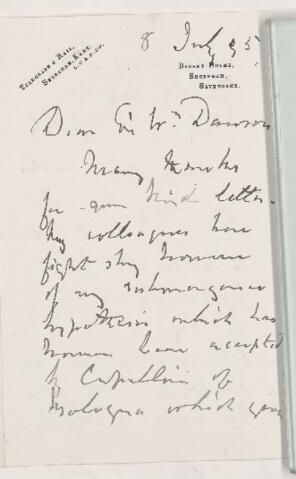 8 July 95
TELEGRAPH & RAIL,
SHOREHAM, KENT.
L.C.& D. RY.
DARENT HULME,
SHOREHAM,
SEVENOAKS.
Dear Sir Wm Dawson
Many thanks
for your kind letter.
My colleagues here
fight shy however
of my submergence
hypothesis which has
however been accepted
by Capellini of
Bologna which gives